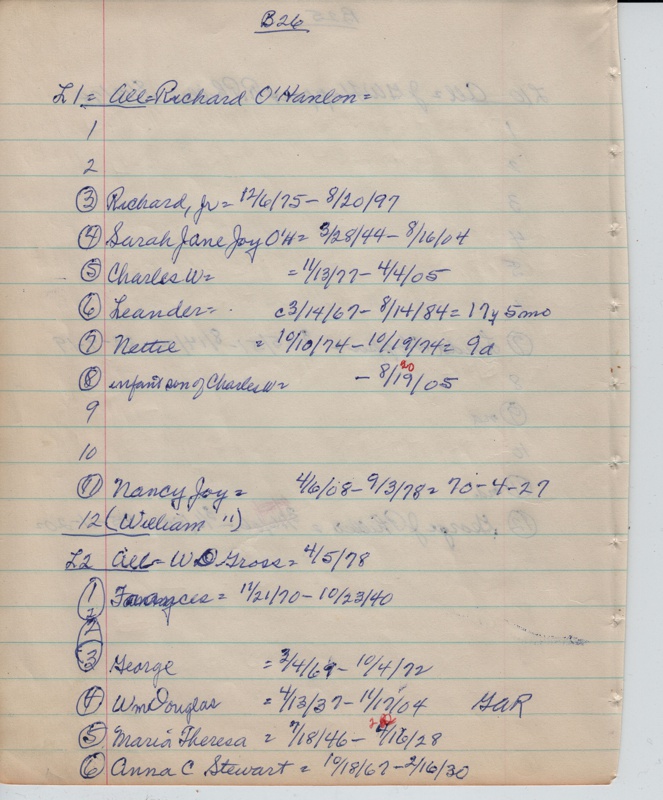 B26
L1 = All = Richard O'Hanlon =
1
2
3 Richard, Jr = 12/6/75 - 8/20/97
4 Sarah Jane Joy O'H = 3/28/44 - 8/16/04
5 Charles W = = 11/13/77 - 4/4/05
6 Leander = c3/14/67 - 8/14/84 = 17y 5mo
7 Nettie = 10/10/74 - 10/19/74 = 9d
20
8 infant son of Charles W = - 8/19/05
9
10
11 Nancy Joy = 4/6/08 - 9/3/78 = 70-4-27
12 (William ")
L2 All = W D Gross = 4/5/78
1 = 11/21/70 - 10/23/40
2
3 George = 3/4/69 - 10/4/72
4 Wm Douglas = 4/13/37 - 11/17/04 GaR
5 Maria Theresa = 7/18/46 - /28
6 Anna C Stewart = 10/18/67 - 2/16/30